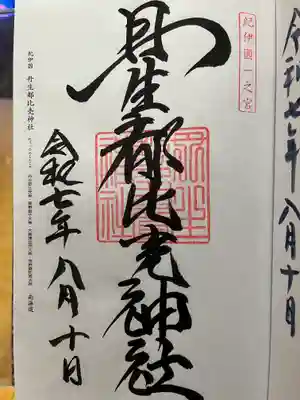 令和七年八月十日
紀伊國一之宮
丹生都比売神社
令和七年八月十日
紀伊國 丹生都比売神社